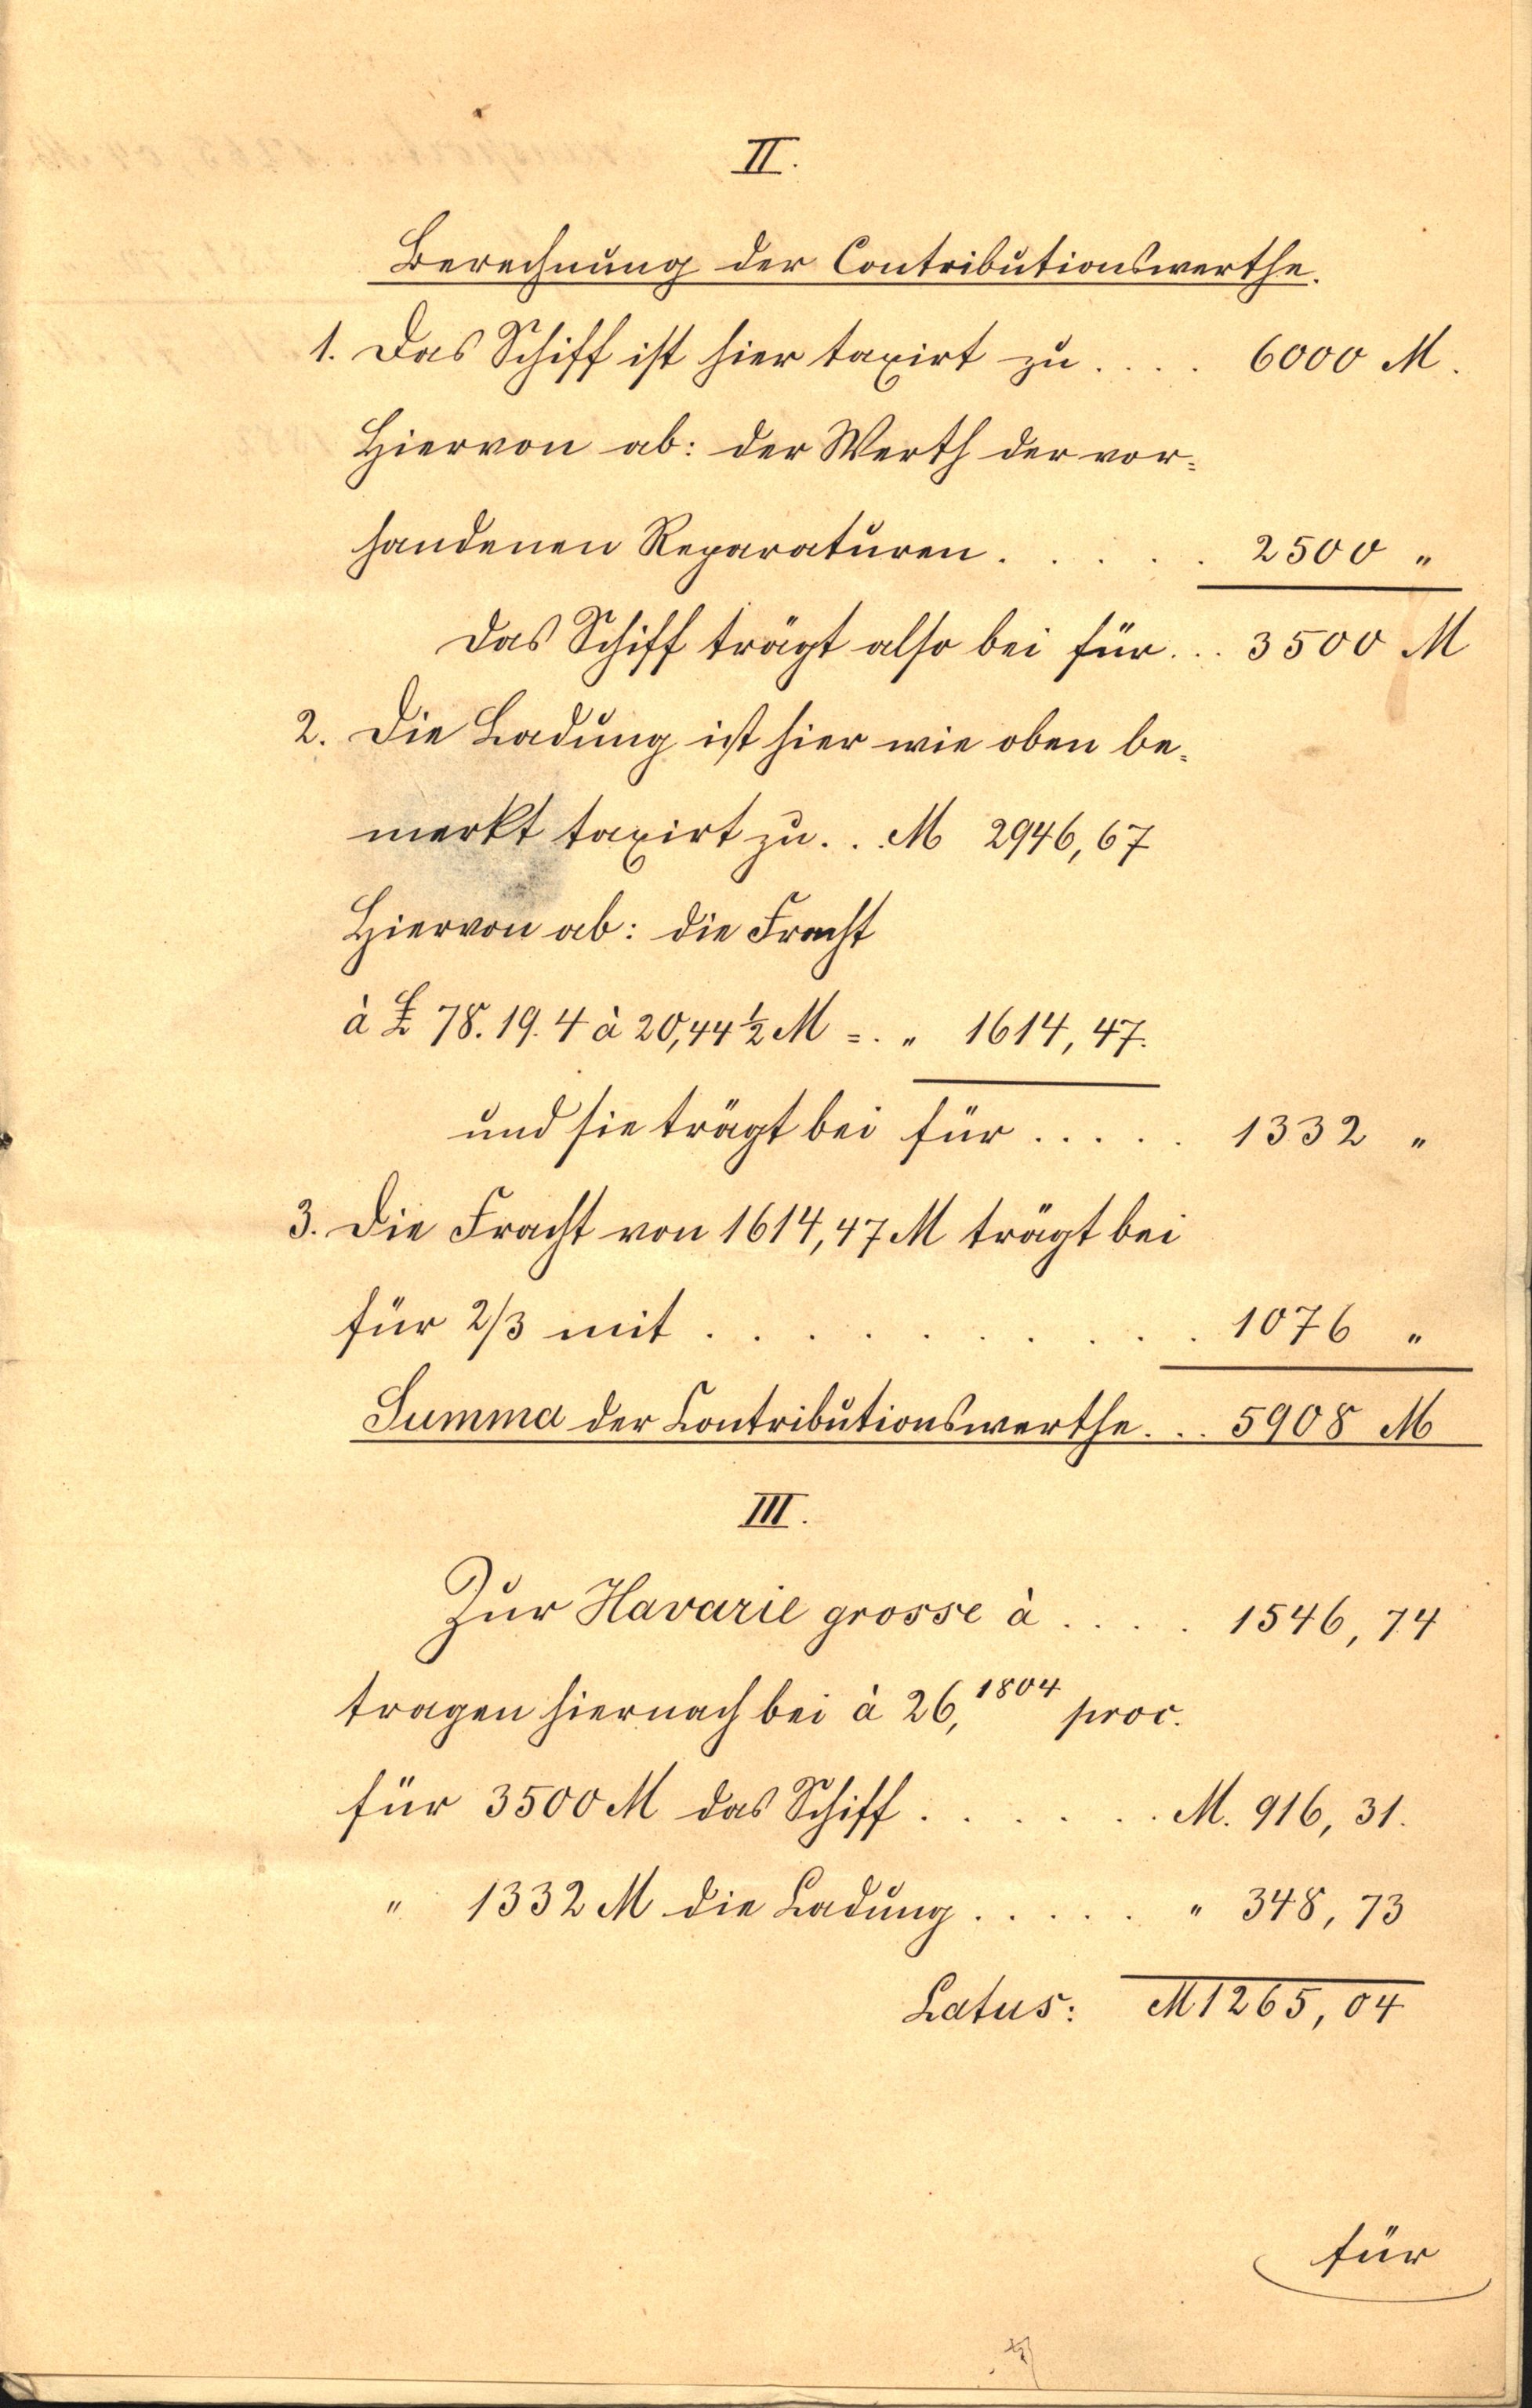 II.
Berechnung der Contributionswerthe.
1. Das Schiff ist hier taxirt zu . . . . 6000 M.
Hiervon ab: der Werth der vor-
handenen Reparaturen . . . . . 2500 "
das Schiff trägt also bei für . . . 3500 M
2. Die Ladung ist hier wie oben be-
merkt taxirt zu . . . M 2946,67
Hiervon ab: die Fracht
à £ 78.19.4 à 20,44½ M = . " 1614,47.
und sie trägt bei für . . . . . 1332 "
3. Die Fracht von 1614,47 M trägt bei
für 2/3 mit . . . . . . . . . . 1076 "
Summa der Contributionswerthe. . . 5908 M
III.
Zur Havarie grosse à . . . . 1546,74
tragen hiernach bei à 26,1804 proc.
für 3500 M das Schiff . . . . . . M. 916,31.
" 1332 M die Ladung . . . . . " 348,73
Latus: M 1265,04
für